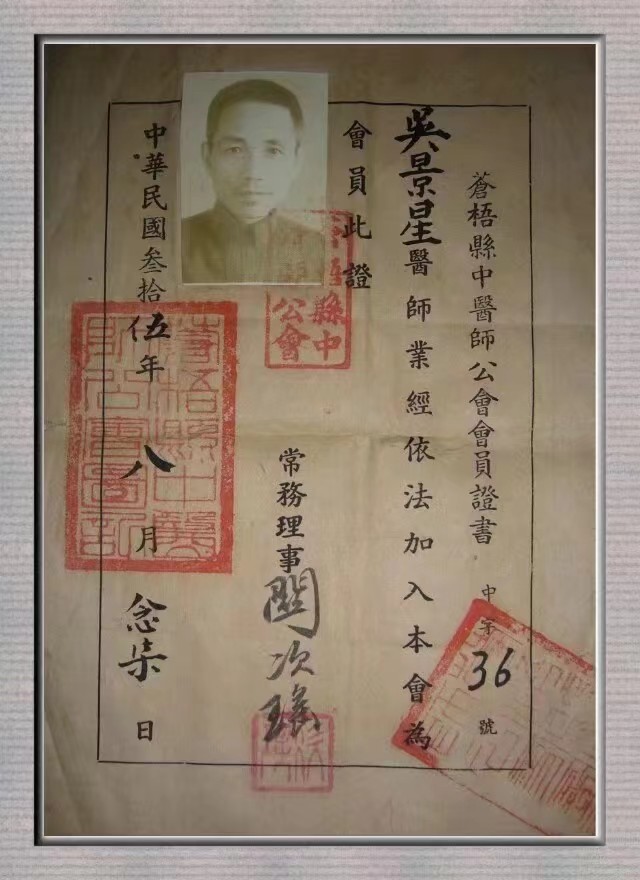 蒼梧縣中醫師公會會員證書
中字36號
吳景星醫師業經依法加入本會為
會員此證
常務理事關次瑤
中華民國叁拾伍年八月念柒日
蒼梧縣中
醫師公會